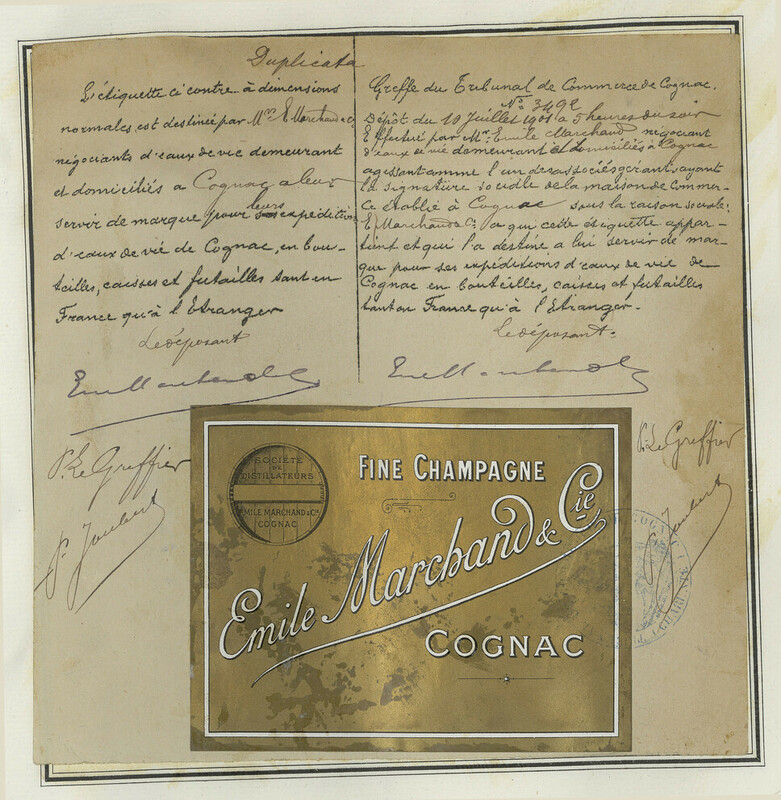 Duplicata
L'étiquette ci contre à dimensions
normales, est destinée par Mrs E. Marchand & Cie
négociants d'eaux de vie demeurant
et domiciliés a Cognac a leur
servir de marque pour leurs expéditions
d'eaux de vie de Cognac, en bou-
teilles, caisses et futailles tant en
France qu'à l'Etranger
Le déposant
Greffe du Tribunal de Commerce de Cognac.
No 3492
Dépôt du 10 Juillet 1901 a 5 heures du soir
Effectué par Mr. Emile Marchand négociant
d'eaux de vie demeurant et domicilié à Cognac
agissant comme l'un des associés gérant, ayant
la signature sociale de la maison de Commer-
ce établie à Cognac sous la raison sociale:
E. Marchand & Cie a qui cette étiquette appar-
tient et qui l'a destine a lui servir de mar-
que pour ses expéditions d'eaux de vie de
Cognac en bouteilles, caisses et futailles
tant en France qu'à l'Etranger.
Le déposant.
Em Marchand & Cie
Em Marchand & Cie
P. Le Greffier
P. Joubert
P. Le Greffier
P. Joubert
SOCIÉTÉ
DE
DISTILLATEURS
EMILE MARCHAND & Cie
COGNAC
FINE CHAMPAGNE
Emile Marchand & Cie
COGNAC